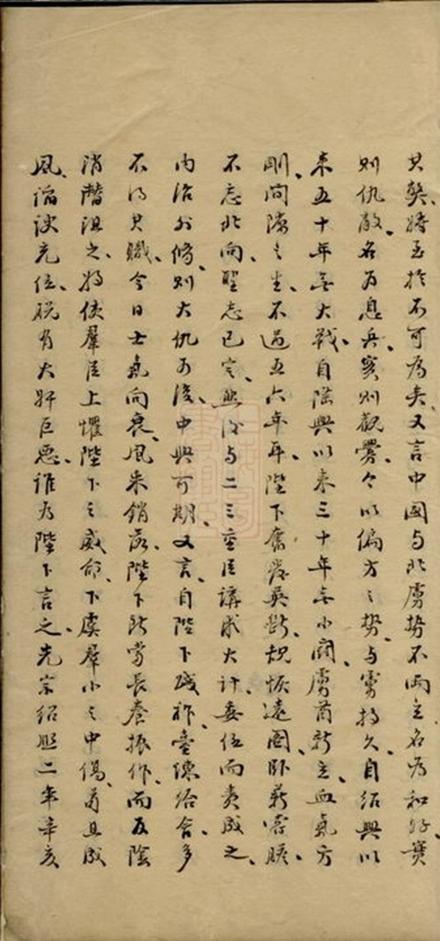 其弊將至於不可為矣又言中國與北虜勢不兩立名為和好實
則仇敵名為息兵實則觀釁今以偏方之勢與虜持久自紹興以
來五十年無大戰自隆興以來三十年無小鬩虜酋新立血氣方
剛間隙之生不過五六年耳陛下奮發英斷規恢遠圖臥薪嘗膽
不忘北向聖志已定然後與二三重臣講求大計委任而責成之
內治外修則大仇可復中興可期又言自陛下踐祚臺諫給舍多
不得其職今日士氣向衰風采銷落陛下所當長養振作而反陰
消潛沮之將使羣臣上懼陛下之威命下虞羣小之中傷苟且成
風諂諛充位脱有大奸巨惡誰為陛下言之光宗紹熙二年辛亥